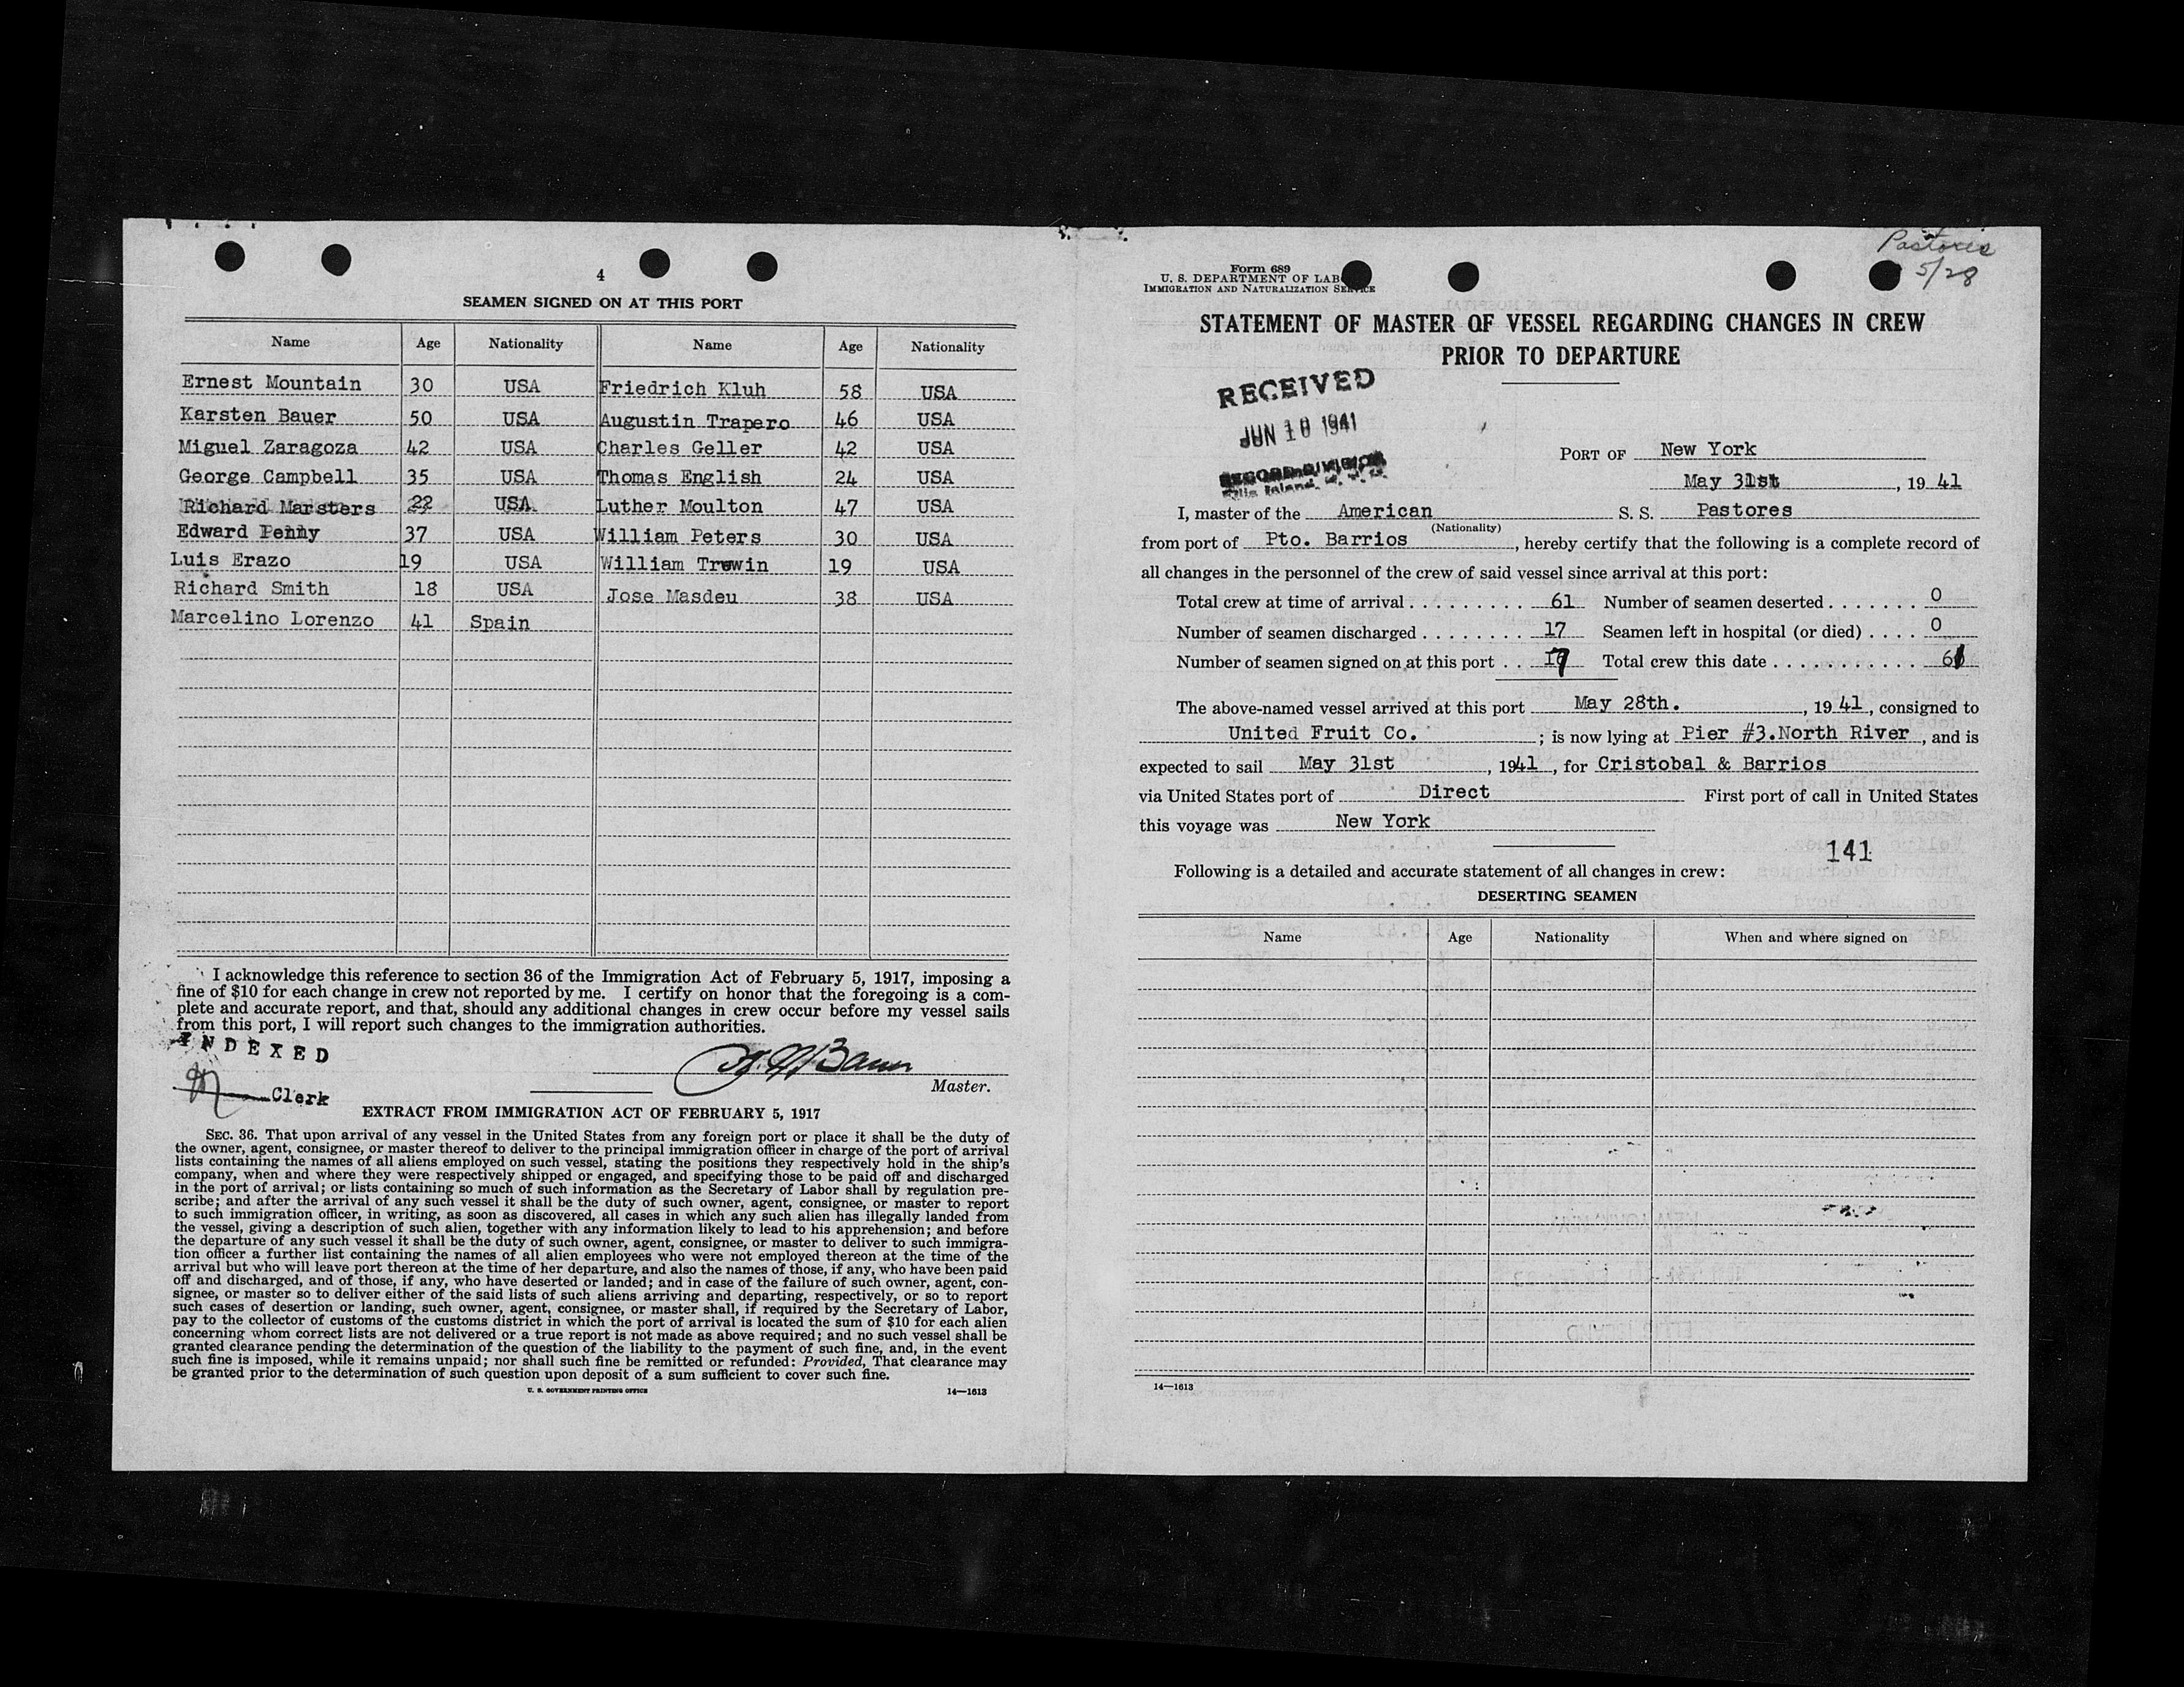 4
SEAMEN SIGNED ON AT THIS PORT
Name Age Nationality Name Age Nationality
Ernest Mountain 30 USA Friedrich Kluh 58 USA
Karsten Bauer 50 USA Augustin Trapero 46 USA
Miguel Zaragoza 42 USA Charles Geller 42 USA
George Campbell 35 USA Thomas English 24 USA
Richard Marsters 22 USA Luther Moulton 47 USA
Edward Penny 37 USA William Peters 30 USA
Luis Erazo 19 USA William Trewin 19 USA
Richard Smith 18 USA Jose Masdeu 38 USA
Marcelino Lorenzo 41 Spain
I acknowledge this reference to section 36 of the Immigration Act of February 5, 1917, imposing a
fine of $10 for each change in crew not reported by me. I certify on honor that the foregoing is a com-
plete and accurate report, and that, should any additional changes in crew occur before my vessel sails
from this port, I will report such changes to the immigration authorities.
INDEXED
Clerk
Master.
EXTRACT FROM IMMIGRATION ACT OF FEBRUARY 5, 1917
SEC. 36. That upon arrival of any vessel in the United States from any foreign port or place it shall be the duty of
the owner, agent, consignee, or master thereof to deliver to the principal immigration officer in charge of the port of arrival
lists containing the names of all aliens employed on such vessel, stating the positions they respectively hold in the ship's
company, when and where they were respectively shipped or engaged, and specifying those to be paid off and discharged
in the port of arrival; or lists containing so much of such information as the Secretary of Labor shall by regulation pre-
scribe; and after the arrival of any such vessel it shall be the duty of such owner, agent, consignee, or master to report
to such immigration officer, in writing, as soon as discovered, all cases in which any such alien has illegally landed from
the vessel, giving a description of such alien, together with any information likely to lead to his apprehension; and before
the departure of any such vessel it shall be the duty of such owner, agent, consignee, or master to deliver to such immigra-
tion officer a further list containing the names of all alien employees who were not employed thereon at the time of the
arrival but who will leave port thereon at the time of her departure, and also the names of those, if any, who have been paid
off and discharged, and of those, if any, who have deserted or landed; and in case of the failure of such owner, agent, con-
signee, or master so to deliver either of the said lists of such aliens arriving and departing, respectively, or so to report
such cases of desertion or landing, such owner, agent, consignee, or master shall, if required by the Secretary of Labor,
pay to the collector of customs of the customs district in which the port of arrival is located the sum of $10 for each alien
concerning whom correct lists are not delivered or a true report is not made as above required; and no such vessel shall be
granted clearance pending the determination of the question of the liability to the payment of such fine, and, in the event
such fine is imposed, while it remains unpaid; nor shall such fine be remitted or refunded: Provided, That clearance may
be granted prior to the determination of such question upon deposit of a sum sufficient to cover such fine.
U. S. GOVERNMENT PRINTING OFFICE 14—1613
Pastores
5/28
Form 689
U. S. DEPARTMENT OF LAB
IMMIGRATION AND NATURALIZATION SERVICE
STATEMENT OF MASTER OF VESSEL REGARDING CHANGES IN CREW
PRIOR TO DEPARTURE
RECEIVED
JUN 10 1941
RECORD DIVISION
Ellis Island, N. Y. H.
PORT OF New York
May 31st, 1941
I, master of the American S. S. Pastores
(Nationality)
from port of Pto. Barrios, hereby certify that the following is a complete record of
all changes in the personnel of the crew of said vessel since arrival at this port:
Total crew at time of arrival . . . . . . . . . 61 Number of seamen deserted . . . . . . . 0
Number of seamen discharged . . . . . . . . 17 Seamen left in hospital (or died) . . . . 0
Number of seamen signed on at this port . . 17 Total crew this date . . . . . . . . . . . 61
The above-named vessel arrived at this port May 28th., 1941, consigned to
United Fruit Co. ; is now lying at Pier #3.North River, and is
expected to sail May 31st, 1941, for Cristobal & Barrios
via United States port of Direct First port of call in United States
this voyage was New York
141
Following is a detailed and accurate statement of all changes in crew:
DESERTING SEAMEN
Name Age Nationality When and where signed on
14—1613